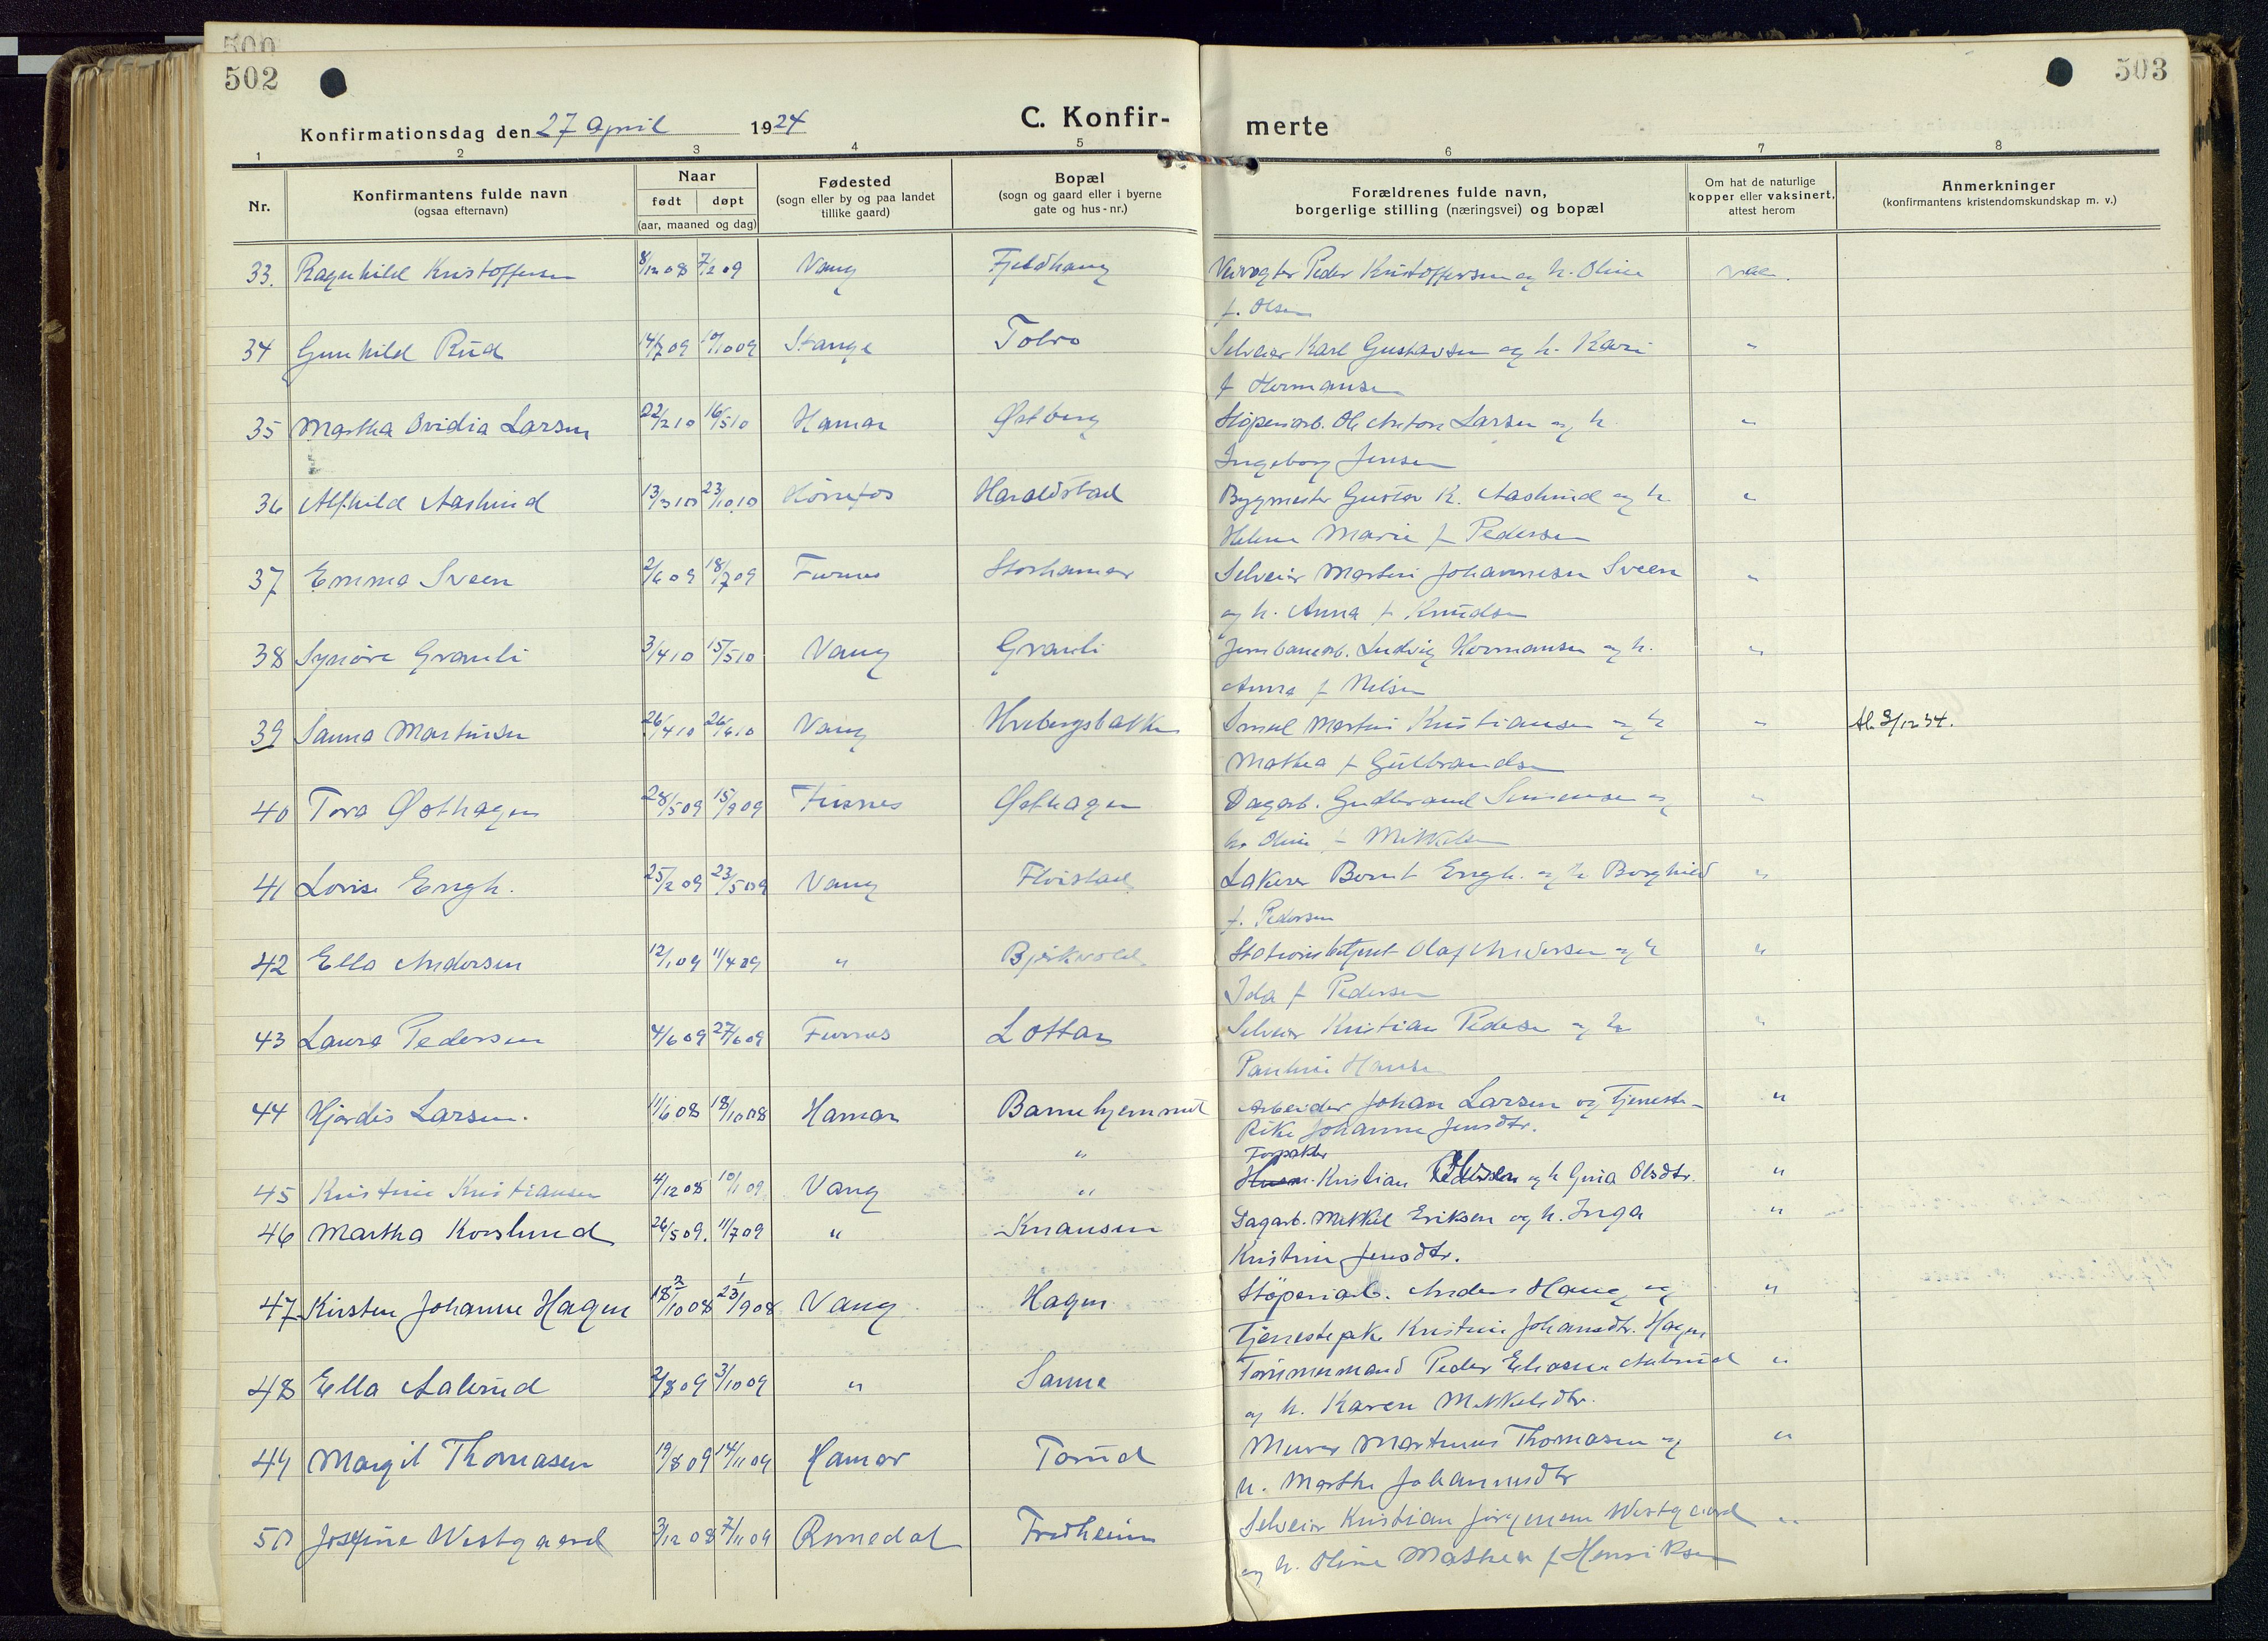 500
502
503
Konfirmationsdag den 27 April 1924
C. Konfir-
merte
1 2 3 4 5 6 7 8
Nr.
Konfirmantens fulde navn
(ogsaa efternavn)
Naar
født døpt
(aar, maaned og dag)
Fødested
(sogn eller by og paa landet
tillike gaard)
Bopæl
(sogn og gaard eller i byerne
gate og hus-nr.)
Forældrenes fulde navn,
borgerlige stilling (næringsvei) og bopæl
Om hat de naturlige
kopper eller vaksinert,
attest herom
Anmerkninger
(konfirmantens kristendomskundskap m. v.)
33. Ragnhild Kristoffersen 8/12 08 7/2 09 Vang Fjeldhaug Veivogter Peder Kristoffersen og h. Oline vac.
f. Olsen
34 Gunhild Rud 14/7 09 10/10 09 Stange Tolvo Selveier Karl Gustavsen og h. Kari "
f Hermansen
35 Martha Ovidia Larsen 22/2 10 16/5 10 Hamar Østberg Støperiarb. Ole Anton Larsen og h. "
Ingeborg Jensen
36 Alfhild Aaslund 13/3 10 23/10 10 Hönefos Haraldstad Bygmester Gustav K. Aaslund og h. "
Helene Marie f Pedersen
37 Emma Sveen 2/6 09 18/7 09 Furnes Storhamar Selveier Martin Johannesen Sveen "
og h. Anna f Knudsen
38 Synöve Granli 3/4 10 15/5 10 Vang Granli Jernbanearb. Ludvig Hermansen og h. "
Anna f Nilsen
39 Sanna Martinsen 26/4 10 26/6 10 Vang Hvebergsbakken Smed Martin Kristiansen og h "
Mathea f Gulbrandsen
40 Tora Østhagen 28/5 09 15/9 09 Furnes Østhagen Dagarb. Gudbrand Simensen og "
h. Oline f Mikkelsen
41 Lovise Engh. 25/2 09 23/5 09 Vang Flöistad Lakerer Bernt Engh. og h Borghild "
f. Pedersen
42 Ella Andersen 12/1 09 11/4 09 " Bjerkvold Stationsbetjent Olaf Andersen og h "
Ida f Pedersen
43 Laura Pedersen 4/6 09 27/6 09 Furnes Lottan Selveier Kristian Pedersen og h "
Pauline Hansen
44 Hjørdis Larsen. 11/6 08 18/10 08 Hamar Barnehjemmet Arbeider Johan Larsen og Tjeneste- "
" Pike Johanne Jensdtr.
Forpakter
45 Kristine Kristiansen 4/12 08 10/1 09 Vang " Husm. Kristian Pedersen og h Gina Olsdtr. "
46 Martha Korslund 26/5 09. 11/7 09 " Knausen Dagarb. Mikkel Eriksen og h. Inga "
Kristine Jensdtr.
47 Kirsten Johanne Hagen 18/10 08 23/9 08 Vang Hagen Stöperiarb. Anders Haug og "
Tjenestepike Kristine Johansdtr. Hagen
48 Ella Aalerud 2/8 09 3/10 09 " Sanne Tömmermand Peder "
og h. Karen Mikkelsdtr.
49 Margit Thomasen 19/8 09 14/11 09 Hamar Torud Murer Martinus Thomasen og "
h. Marthe Johannesdtr
50 Josefine Westgaard 3/12 08 7/11 09 Romedal Fredheim Selveier Kristian Jörgensen Westgaard "
og h. Oline Mathea f Henriksen